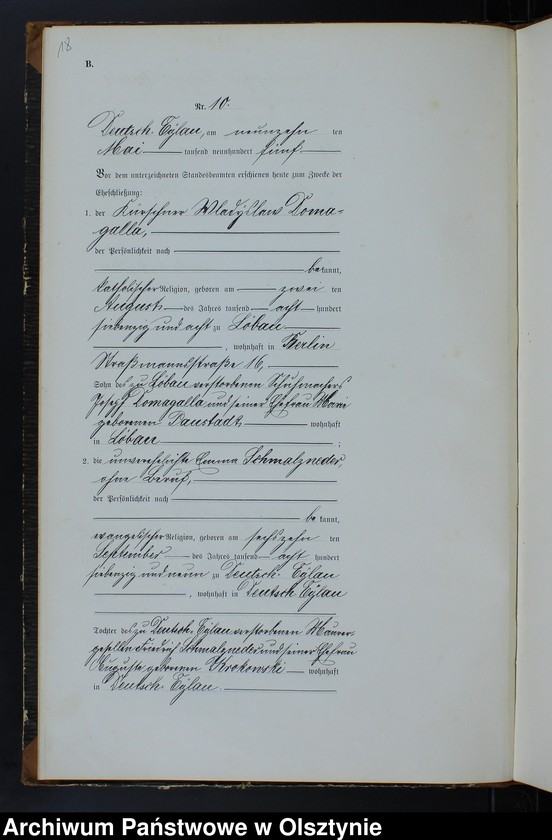 18
B.
Nr. 10.
Deutsch. Eylau, am neunzehn ten
Mai tausend neunhundert fünf
Vor dem unterzeichneten Standesbeamten erschienen heute zum Zwecke der
Eheschließung:
1. der Kürschner Wladyslaw Doma-
galla,
der Persönlichkeit nach
bekannt,
katholischer Religion, geboren am zwei ten
August des Jahres tausend acht hundert
siebenzig und acht zu Löbau
, wohnhaft in Berlin
Straßmannstraße 16,
Sohn des zu Löbau verstorbenen Schuhmachers
Josef Domagalla und seiner Ehefrau Marie
geborenen wohnhaft
in Löbau ;
2. die unverehelichte Emma Schmalzneder,
ohne Beruf,
der Persönlichkeit nach
bekannt,
evangelischer Religion, geboren am sechszehn ten
September des Jahres tausend acht hundert
siebenzig und neun zu Deutsch. Eylau
, wohnhaft in Deutsch. Eylau
Tochter des zu Deutsch. Eylau verstorbenen Maurer-
gesellen Friedrich Schmalzneder und seiner Ehefrau
Auguste geborenen wohnhaft
in Deutsch. Eylau.
Archiwum Państwowe w Olsztynie